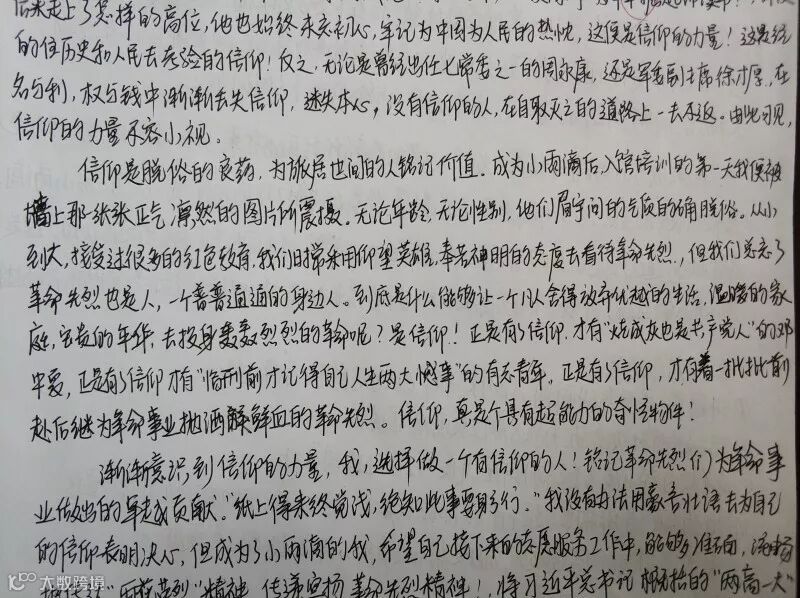 后来走上了怎样的高位,他也始终未忘初心,牢记为中国为人民的热忱,这便是信仰的力量!这是经
的住历史和人民去考验的信仰!反之,无论是曾经出任七常委之一的周永康,还是军委副主席徐才厚,在
名与利,权与钱中渐渐丢失信仰,迷失本心,没有信仰的人,在自取灭亡的道路上一去不返。由此可见,
信仰的力量不容小视。
信仰是脱俗的良药,为旅居世间的人铭记价值。成为小雨滴后,入馆培训的第一天我便被
墙上那一张张正气凛然的图片所震撼。无论年龄,无论性别,他们眉宇间的气质的确脱俗。从小
到大,接受过很多的红色教育,我们日常采用仰望英雄,奉若神明的态度去看待革命先烈,但我们总忘了
革命先烈也是人,一个普普通通的身边人。到底是什么能够让一个凡人舍得放弃优越的生活,温暖的家
庭,宝贵的年华,去投身轰轰烈烈的革命呢?是信仰!正是有了信仰,才有“烧成灰也是共产党人”的邓
中夏,正是有了信仰才有“临刑前才记得自己人生两大憾事”的有志青年,正是有了信仰,才有着一批批前
赴后继为革命事业抛洒鲜血的革命先烈。信仰,真是个具有超能力的奇怪物件!
渐渐意识到信仰的力量,我,选择做一个有信仰的人!铭记革命先烈们为革命事
业做出的卓越贡献。“纸上得来终觉浅,绝知此事要躬行。”我没有办法用豪言壮语去为自己
的信仰表明决心,但成为了小雨滴的我,希望自己接下来的志愿服务工作中,能够准确,流畅
精神,传递宣扬革命先烈精神!将习近平总书记概括的“两高一大”
大数跨境